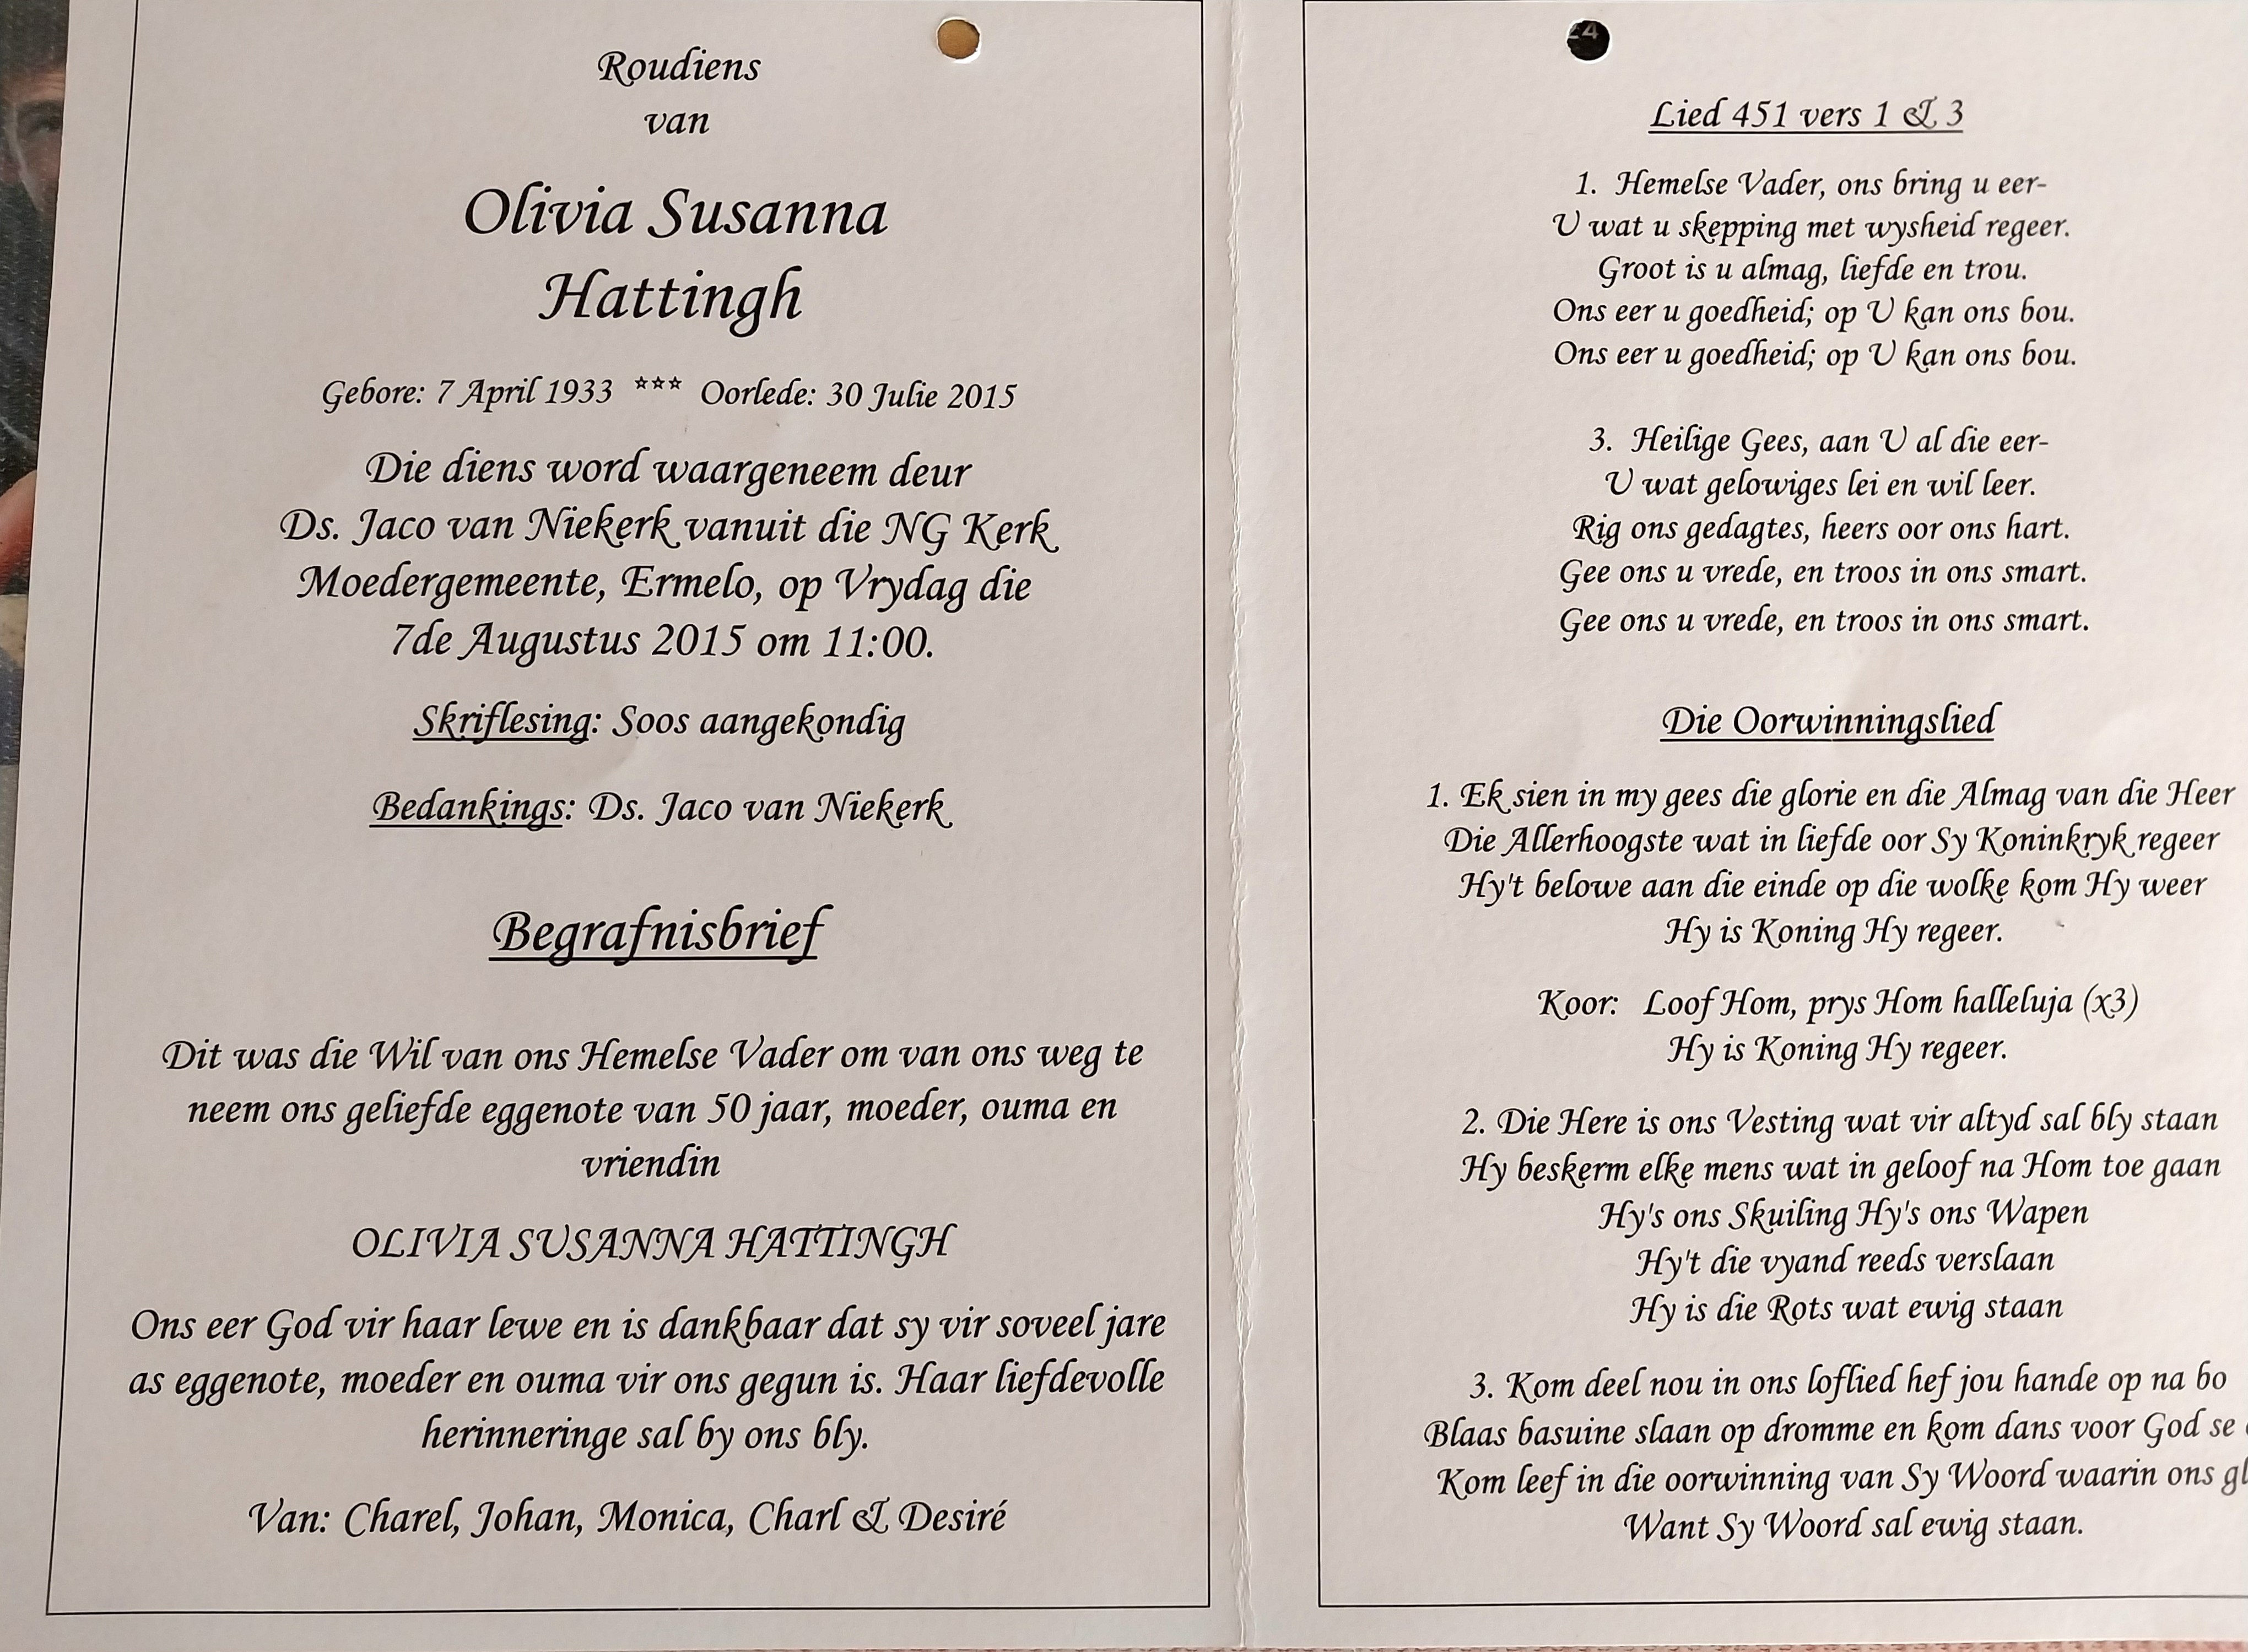 Roudiens
van
Olivia Susanna
Hattingh
Gebore: 7 April 1933 *** Oorlede: 30 Julie 2015
Die diens word waargeneem deur
Ds. Jaco van Niekerk vanuit die NG Kerk
Moedergemeente, Ermelo, op Vrydag die
7de Augustus 2015 om 11:00.
Skriflesing: Soos aangekondig
Bedankings: Ds. Jaco van Niekerk
Begrafnisbrief
Dit was die Wil van ons Hemelse Vader om van ons weg te
neem ons geliefde eggenote van 50 jaar, moeder, ouma en
vriendin
OLIVIA SUSANNA HATTINGH
Ons eer God vir haar lewe en is dankbaar dat sy vir soveel jare
as eggenote, moeder en ouma vir ons gegun is. Haar liefdevolle
herinneringe sal by ons bly.
Van: Charel, Johan, Monica, Charl & Desiré
Lied 451 vers 1 & 3
1. Hemelse Vader, ons bring u eer-
U wat u skepping met wysheid regeer.
Groot is u almag, liefde en trou.
Ons eer u goedheid; op U kan ons bou.
Ons eer u goedheid; op U kan ons bou.
3. Heilige Gees, aan U al die eer-
U wat gelowiges lei en wil leer.
Rig ons gedagtes, heers oor ons hart.
Gee ons u vrede, en troos in ons smart.
Gee ons u vrede, en troos in ons smart.
Die Oorwinningslied
1. Ek sien in my gees die glorie en die Almag van die Heer
Die Allerhoogste wat in liefde oor Sy Koninkryk regeer
Hy't belowe aan die einde op die wolke kom Hy weer
Hy is Koning Hy regeer.
Koor: Loof Hom, prys Hom halleluja (x3)
Hy is Koning Hy regeer.
2. Die Here is ons Vesting wat vir altyd sal bly staan
Hy beskerm elke mens wat in geloof na Hom toe gaan
Hy's ons Skuiling Hy's ons Wapen
Hy't die vyand reeds verslaan
Hy is die Rots wat ewig staan
3. Kom deel nou in ons loflied hef jou hande op na bo
Blaas basuine slaan op dromme en kom dans voor God se
Kom leef in die oorwinning van Sy Woord waarin ons
Want Sy Woord sal ewig staan.